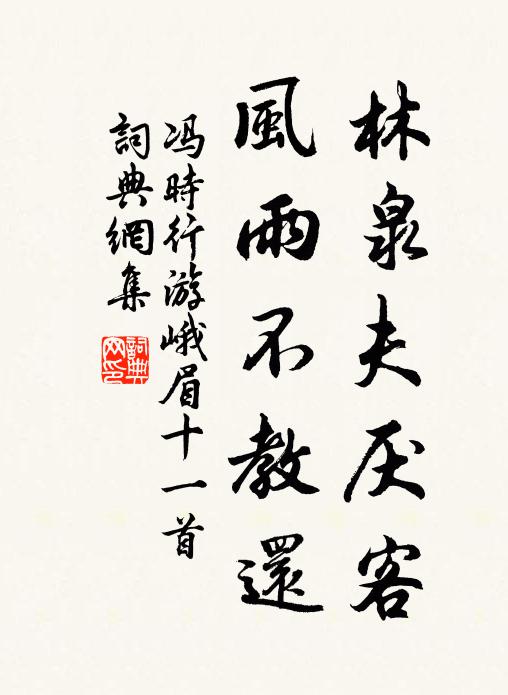 林泉夫厌客
風雨不教還
冯時行游峨眉十一首
詞典網集
詞典网印